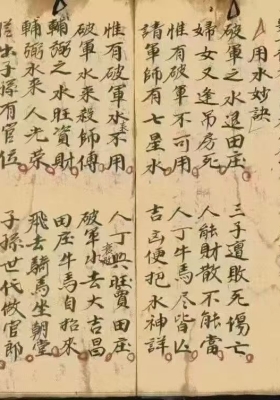 用水妙訣
破軍之水退田庄
三子遭敗死傷亡
婦女又逢吊房死
人能財散不能當
惟有破軍不可用
人丁牛馬尽皆亾
請軍師有七星水
吉凶便把水神詳
惟有破軍水不用
人丁興旺買田庄
破軍水來殺師傅
破軍水去大吉昌
輔弼之水旺資財
田庄牛馬自招來
輔弼水來人光荣
飛去騎馬坐朝堂
出子孫有官位
子孫世代做官郎